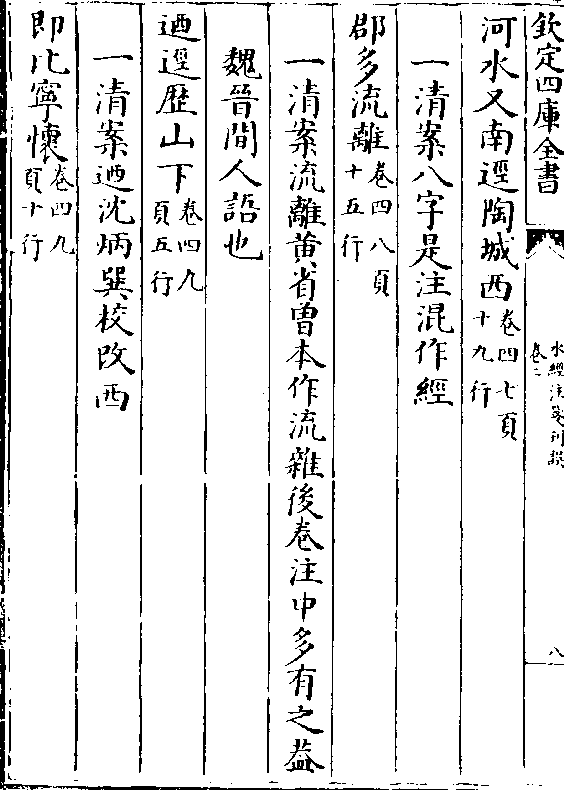 欽定四庫全書
水經注箋刊誤
卷二
八
河水又南逕陶城西卷四七頁十九行
一清案八字是注混作經
郡多流離卷四八頁十五行
一清案流離黄省曾本作流雜後卷注中多有之葢
魏晉間人語也
迺逕歴山下卷四九頁五行
一清案迺沈炳巽校改西
即比寧懷卷四九頁十行